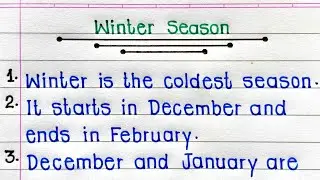 Winter Season
1. Winter is the coldest season.
2. It starts in December and
ends in February.
3. December and January are